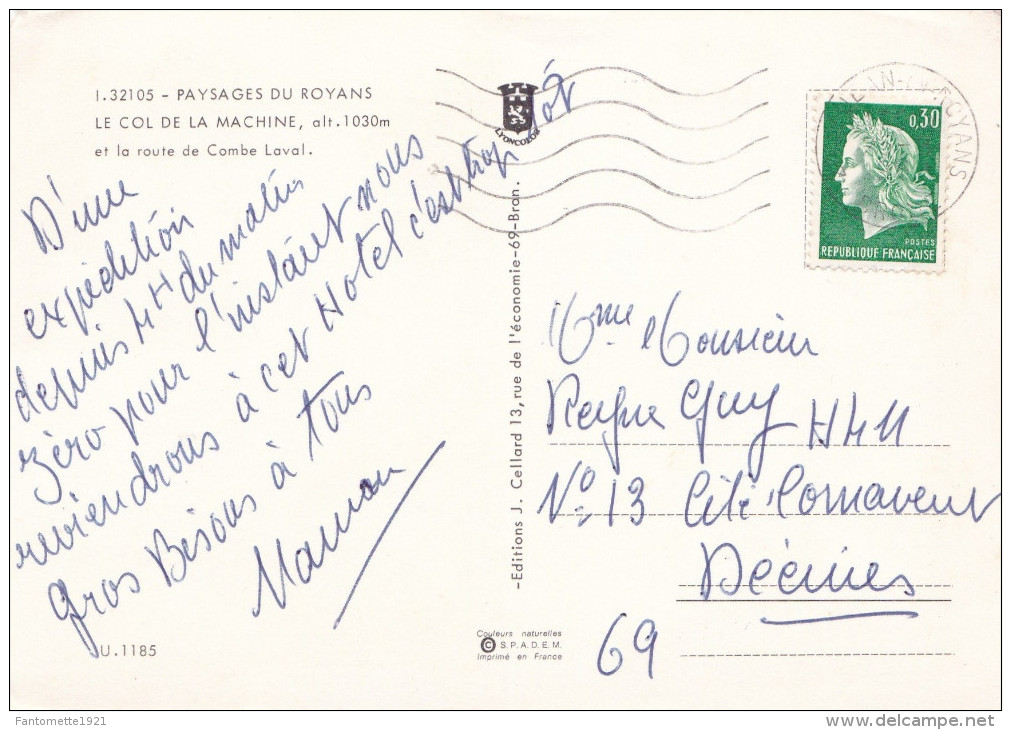 I.32105 - PAYSAGES DU ROYANS
LE COL DE LA MACHINE, alt.1030m
et la route de Combe Laval.
D'une
expédition
depuis 4H du matin
zéro pour l'instant nous
reviendrons à cet Hotel c'est trop tôt
gros Bisous à tous
Maman
U.1185
LYONCOLOR
-Editions J. Cellard 13, rue de l'économie-69-Bron.
Couleurs naturelles
© S.P.A.D.E.M.
Imprimé en France
EN-ROYANS
0,30
POSTES
REPUBLIQUE FRANÇAISE
Mme Monsieur
Guy H411
No 13 Cité
Décines
69
Fantomette1921
delcampe.net